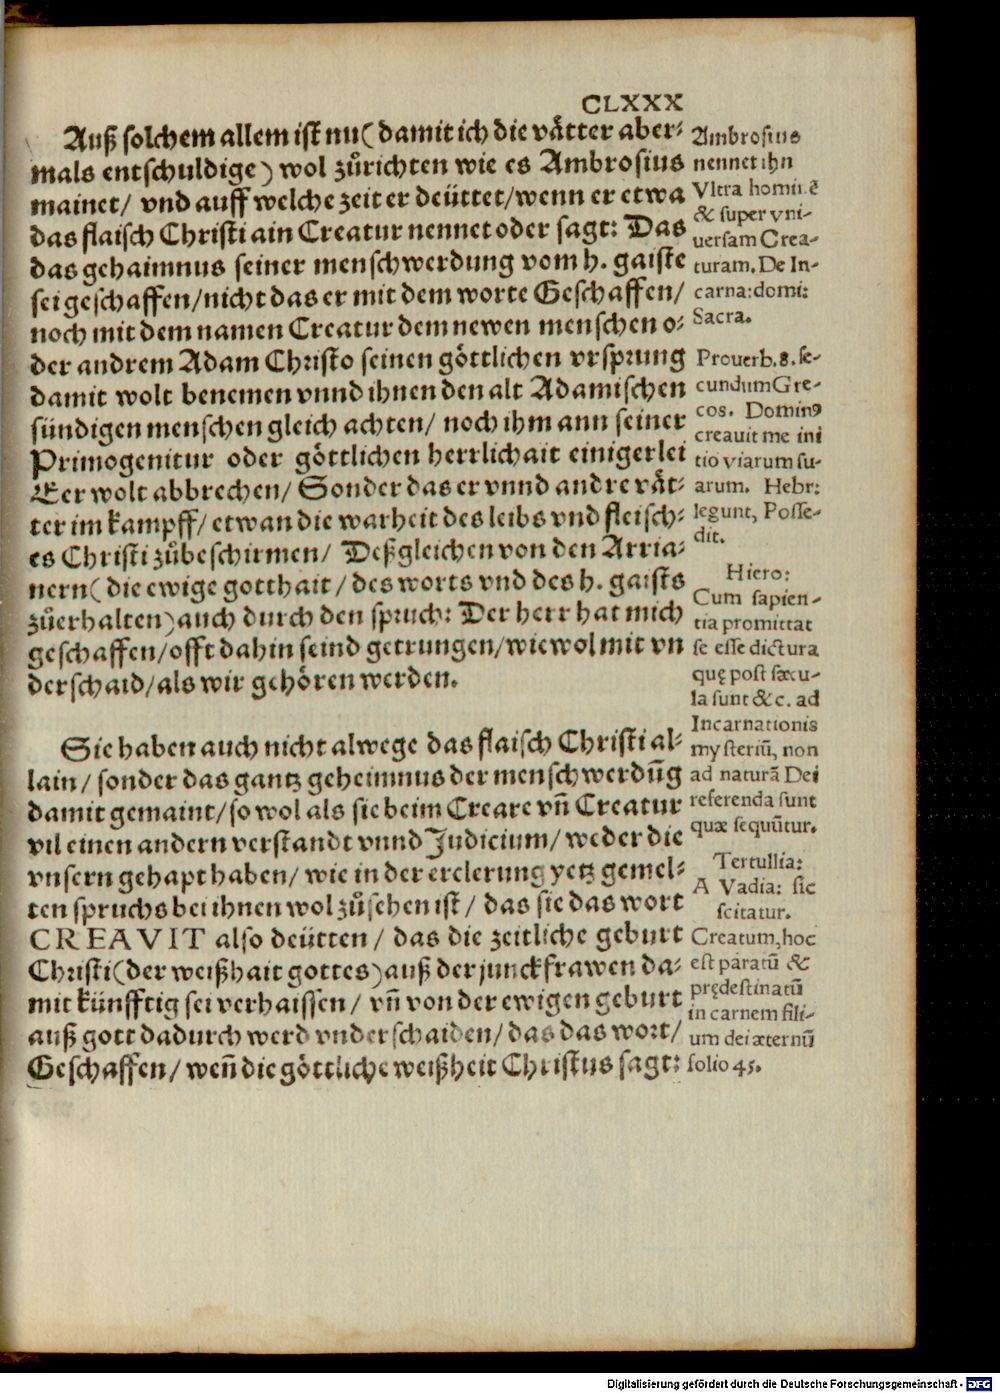 CLXXX
Auß solchem allem ist nu( damit ich die vätter aber⸗
mals entschuldige) wol zůrichten wie es Ambrosius
mainet/ vnd auff welche zeit er deüttet/wenn er etwa
das flaisch Christi ain Creatur nennet oder sagt: Das
das gehaimnus seiner menschwerdung vom h. gaiste
sei geschaffen/nicht das er mit dem worte Geschaffen/
noch mit dem namen Creatur dem newen menschen o⸗
der andrem Adam Christo seinen göttlichen vrsprung
damit wolt benemen vnnd ihnen den alt Adamischen
sündigen menschen gleich achten/ noch ihm ann seiner
Primogenitur oder göttlichen herrlichait einigerlei
Eer wolt abbrechen/ Sonder das er vnnd andre vät⸗
ter im kampff/ etwan die warheit des leibs vnd fleisch⸗
es Christi zůbeschirmen/ Deßgleichen von den Arria⸗
nern( die ewige gotthait/ des worts vnd des h. gaists
zůerhalten)auch durch den spruch: Der herr hat mich
geschaffen/offt dahin seind getrungen/wiewol mit vn
derschaid/als wir gehören werden.
Sie haben auch nicht alwege das flaisch Christi al⸗
lain/ sonder das gantz geheimnus der menschwerdūg
damit gemaint/so wol als sie beim Creare vñ Creatur
vil einen andern verstandt vnnd Judicium/ weder die
vnsern gehapt haben/ wie in der erclerung yetz gemel⸗
ten spruchs bei ihnen wol zůsehen ist/ das sie das wort
CREAVIT also deütten/ das die zeitliche geburt
Christi(der weißhait gottes)auß der junckfrawen da⸗
mit künfftig sei verhaissen/ vñ von der ewigen geburt
auß gott dadurch werd vnderschaiden/ das das wort/
Geschaffen/ weñ die göttliche weißheit Christus sagt:
Ambrosius
nennet ihn
Vltra hominē
& super vni-
uersam Crea-
turam. De In-
carna: domi:
Sacra.
Prouerb. 8. se-
cundum Gre-
cos. Dominꝰ
creauit me ini
tio viarum su-
arum. Hebr:
legunt, Posse-
dit.
Hiero:
Cum sapien-
tia promittat
se esse dictura
quę post sæcu-
la sunt &c. ad
Incarnationis
mysteriū, non
ad naturā Dei
referenda sunt
quæ sequūtur.
Tertullia:
A Vadia: sic
scitatur.
Creatum, hoc
est paratū &
prędestinatū
in carnem fili-
um dei æternū
folio 45.
Digitalisierung gefördert durch die Deutsche Forschungsgemeinschaft - DFG